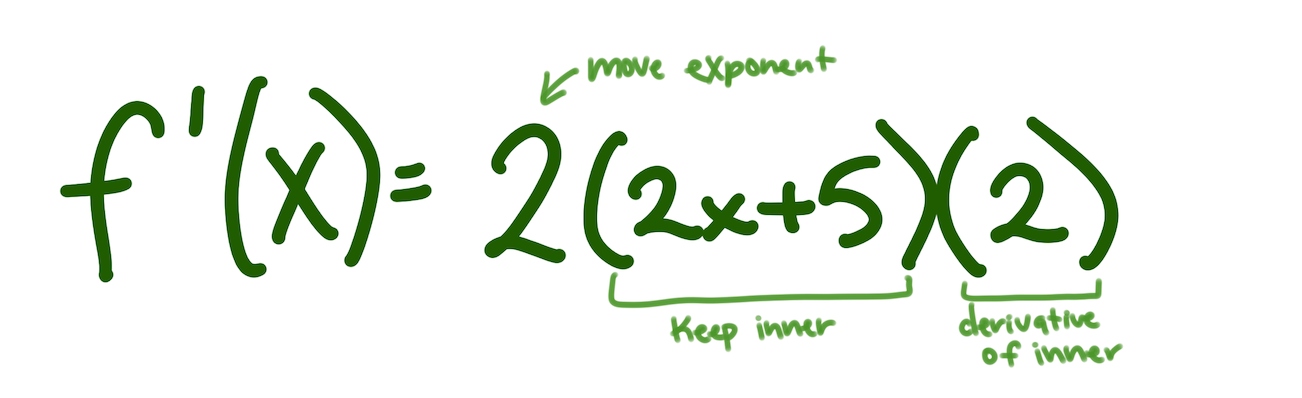 move exponent
f'(x)= 2(2x+5)(2)
Keep inner
derivative
of inner